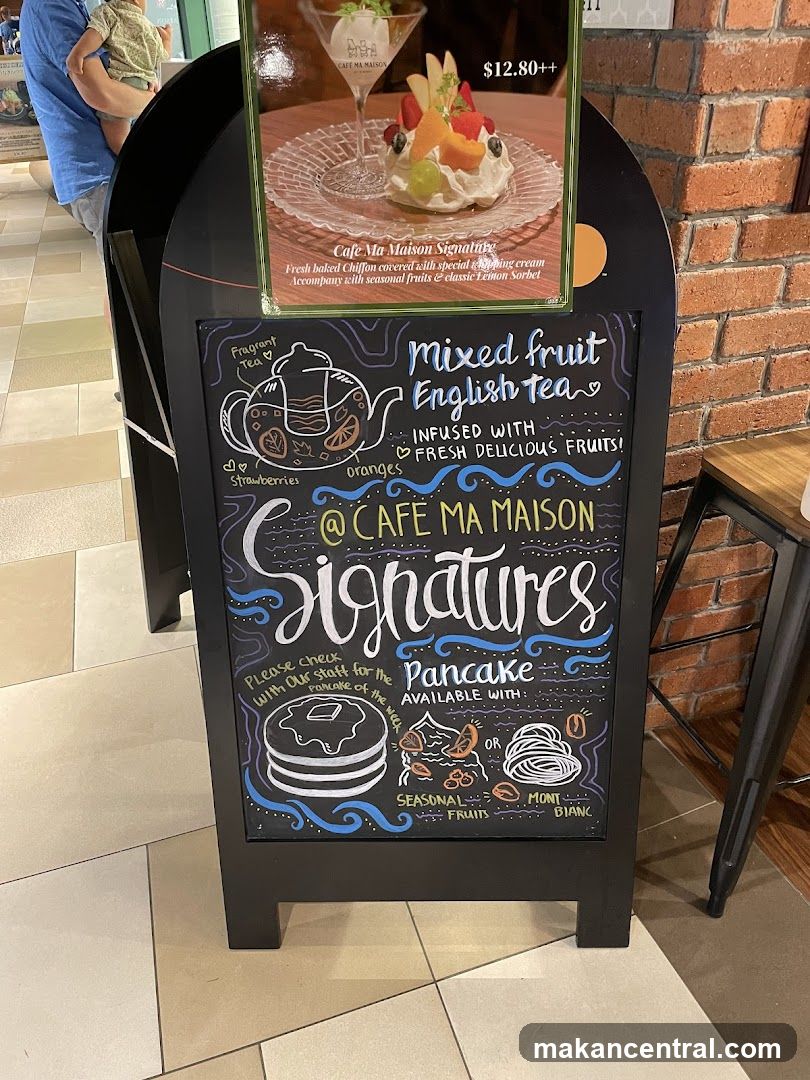 CAFE MA MAISON
$12.80++
Cafe Ma Maison Signature
Fresh baked Chiffon covered with special whipping cream
Accompany with seasonal fruits & classic Lemon Sorbet
Fragrant
Tea
Strawberries
Oranges
Mixed fruit
English tea
INFUSED WITH
FRESH DELICIOUS FRUITS!
@ CAFE MA MAISON
Signatures
Please check
with our staff for the
Pancake of the week
Pancake
AVAILABLE WITH:
OR
SEASONAL
FRUITS
MONT
BLANC
makancentral.com